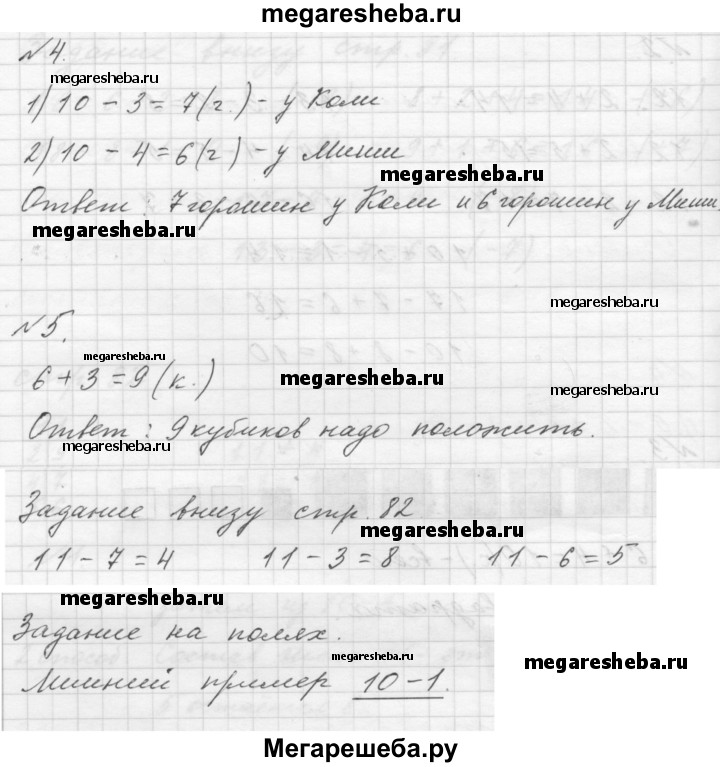 megaresheba.ru
№4.
megaresheba.ru
1) 10 - 3 = 7 (г.) - у Коли
2) 10 - 4 = 6 (г) - у Миши
megaresheba.ru
Ответ: 7 горошин у Коли и 6 горошин у Миши
megaresheba.ru
megaresheba.ru
№5.
megaresheba.ru
6 + 3 = 9 (к.)
megaresheba.ru
megaresheba.ru
Ответ: 9 кубиков надо положить.
megaresheba.ru
Задание внизу стр. 82
megaresheba.ru
11 - 7 = 4 11 - 3 = 8 11 - 6 = 5
megaresheba.ru
Задание на полях.
megaresheba.ru
megaresheba.ru
Лишний пример 10 - 1.
Мегарешеба.ру